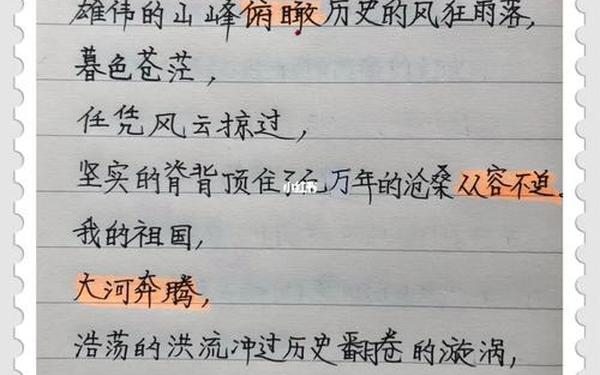 雄伟的山峰俯瞰历史的风狂雨落,
暮色苍茫,
任凭风云掠过,
坚实的脊背顶住了亿万年的沧桑从容不迫。
我的祖国,
大河奔腾,
浩荡的洪流冲过历史翻卷的漩涡,
小红书